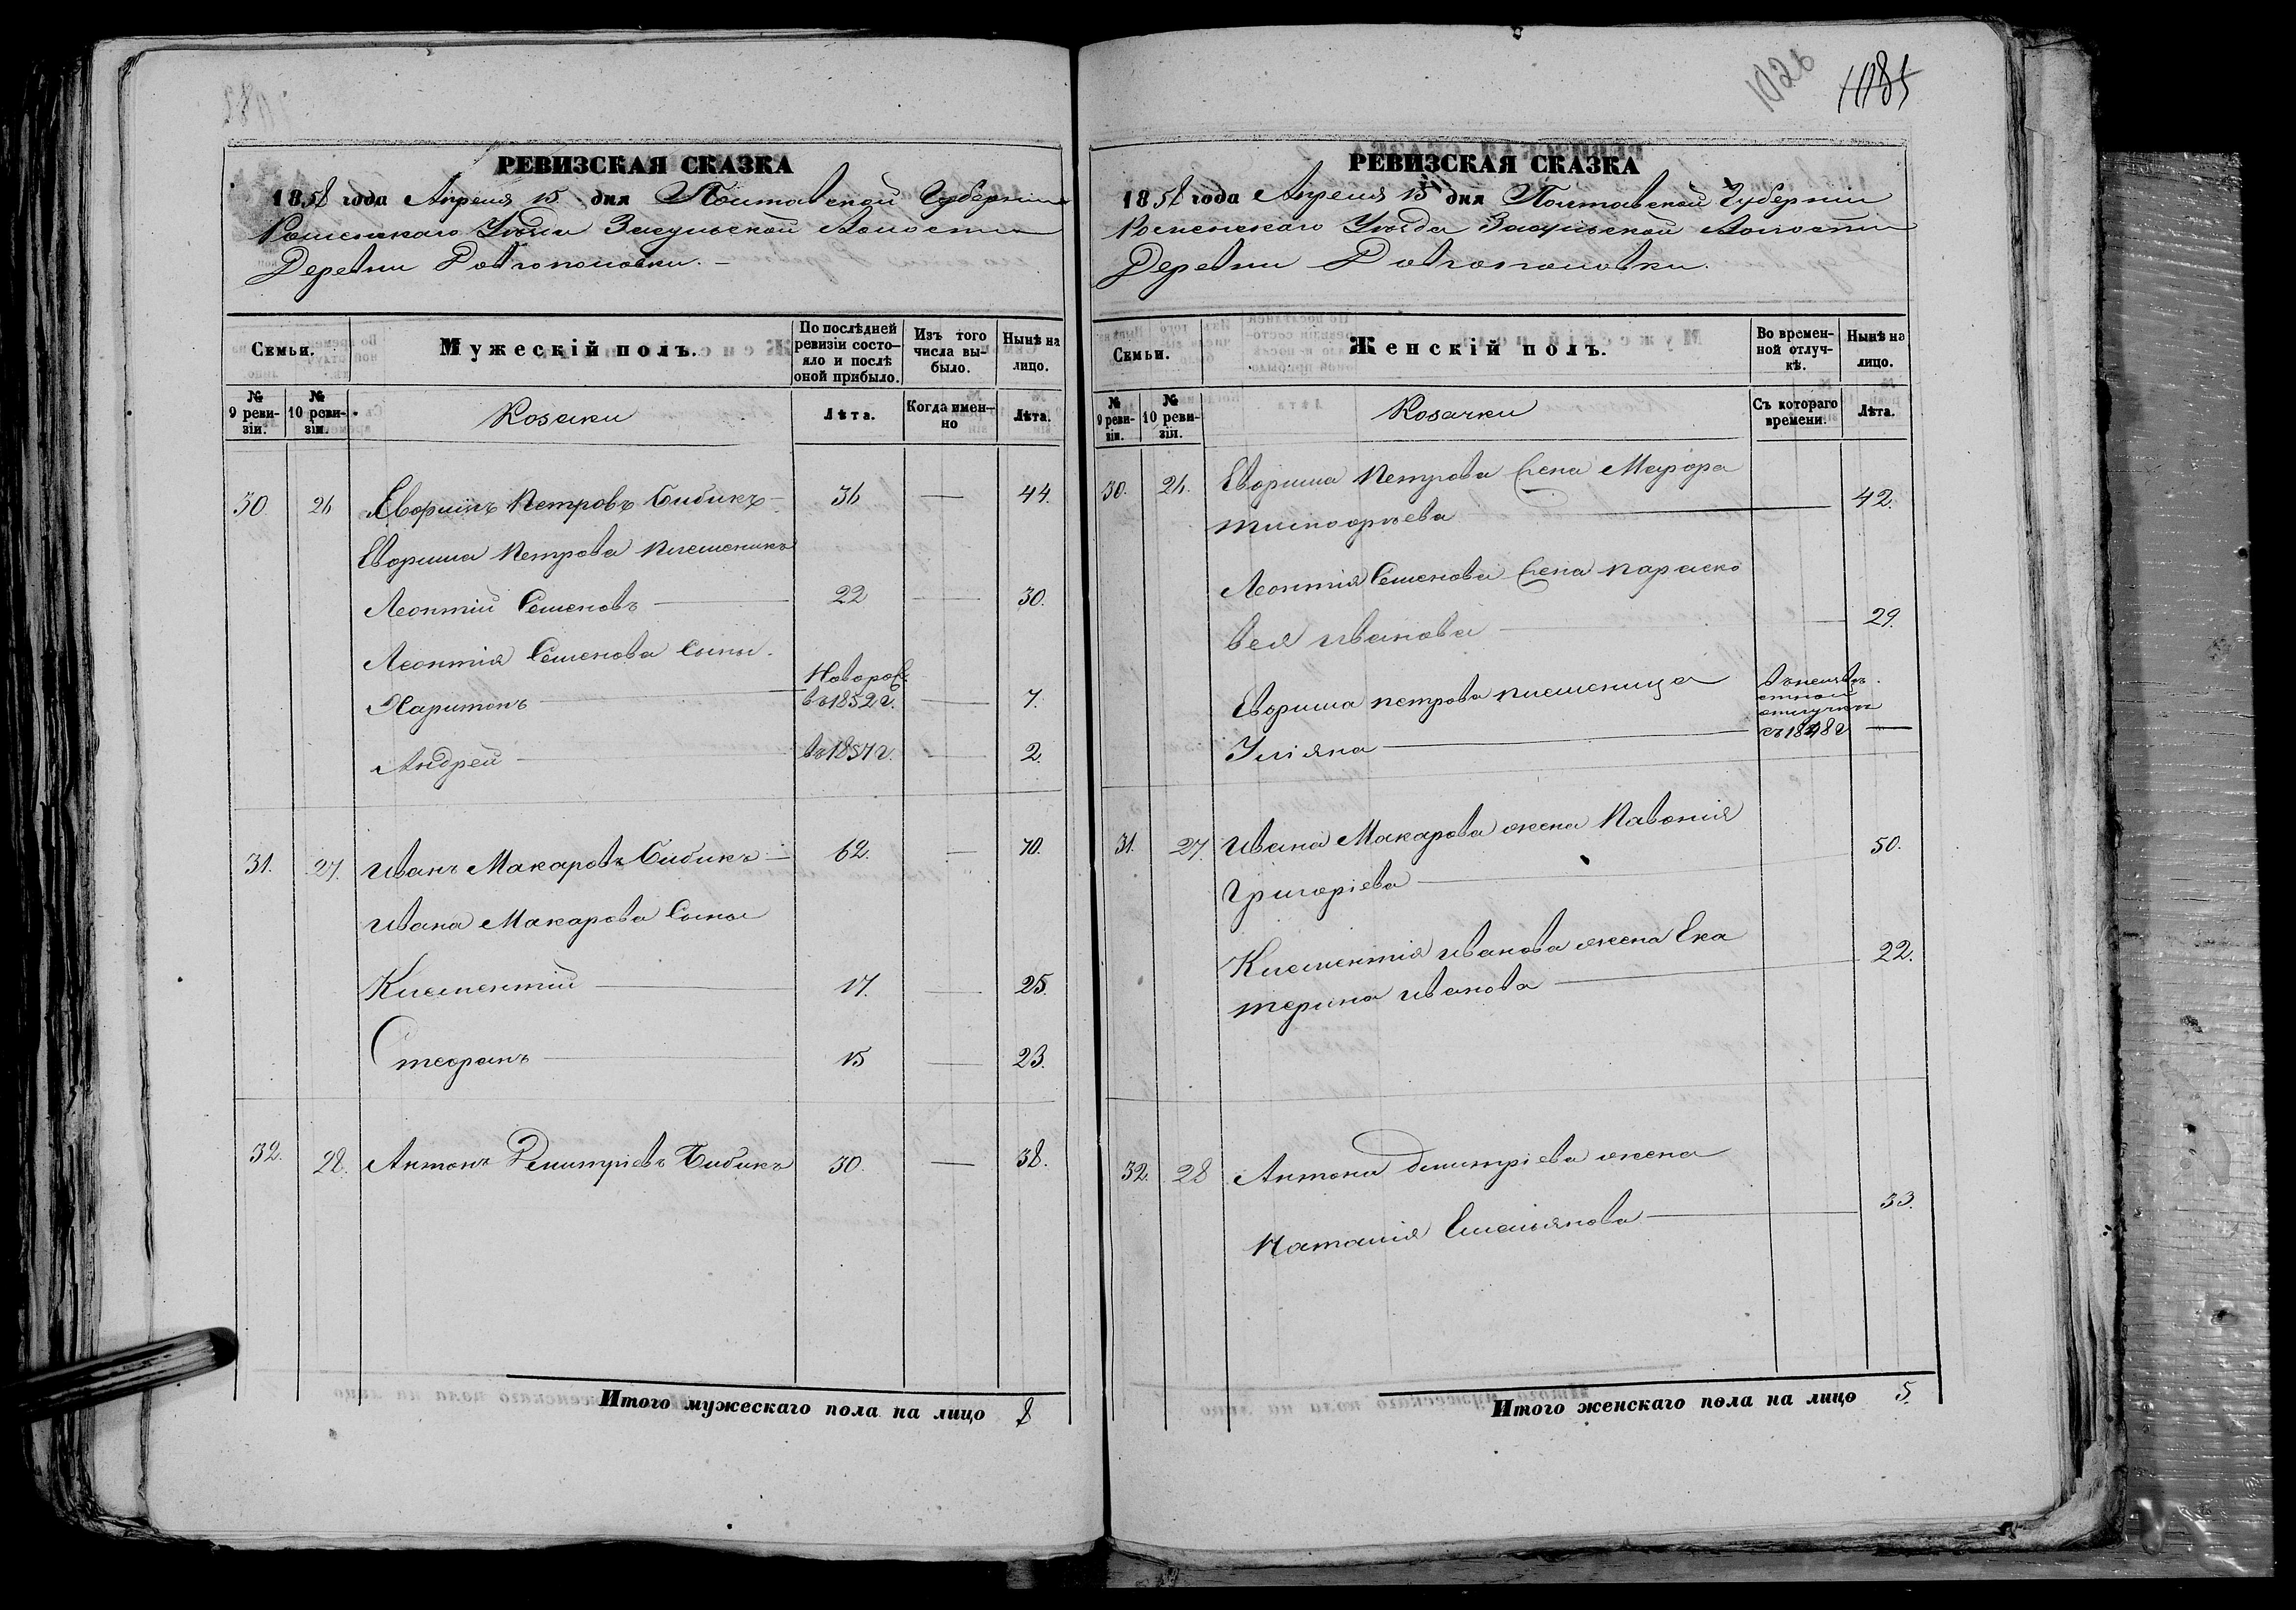 РЕВИЗСКАЯ СКАЗКА
1858 года Апреля 15 дня Полтавской Губернии
Роменскаго Уѣзда Засульской Волости
Деревни Довгополовки.
Семьи.
Мужескій полъ.
По послѣдней ревизіи состояло и послѣ оной прибыло.
Изъ того числа выбыло.
Нынѣ на лицо.
№ 9 ревизіи.
№ 10 ревизіи.
Козаки
Лѣта.
Когда именно
Лѣта.
30 26 Ефримъ Петровъ Бибикъ 36 — 44.
Ефрима Петрова племеникъ
Леонтій Семеновъ 22 — 30.
Леонтія Семенова Сыны.
Харитонъ Новорож. въ 1852 г. — 7.
Андрей въ 1857 г. — 2.
31. 27. Иванъ Макаровъ Бибикъ — 62. — 70.
Ивана Макарова Сыны
Клементій 17. — 25.
Стефанъ 15 — 23.
32. 28. Антонъ Демитріевъ Бибикъ 30. — 38.
Итого мужескаго пола на лицо 8
1026
1085
РЕВИЗСКАЯ СКАЗКА
1858 года Апреля 15 дня Полтавской Губерніи
Роменскаго Уѣзда Засульской Волости
Деревни Довгополовки.
Семьи.
Женскій полъ.
Во временной отлучкѣ.
Нынѣ на лицо.
№ 9 ревизіи.
№ 10 ревизіи.
Козачки
Съ котораго времени.
Лѣта.
30. 26. Ефрима Петрова жена Марфа
Тимофѣева 42.
Леонтія Семенова жена Параско
вея Иванова 29.
Ефрима Петрова племеница
Уліяна съ 1848 г —
31. 27. Ивана Макарова жена
Григоріева 50.
Клементія Иванова жена Ека
терина Иванова 22.
32. 28 Антона Дмитріева жена
Наталія Емельянова 33.
Итого женскаго пола на лицо 5.